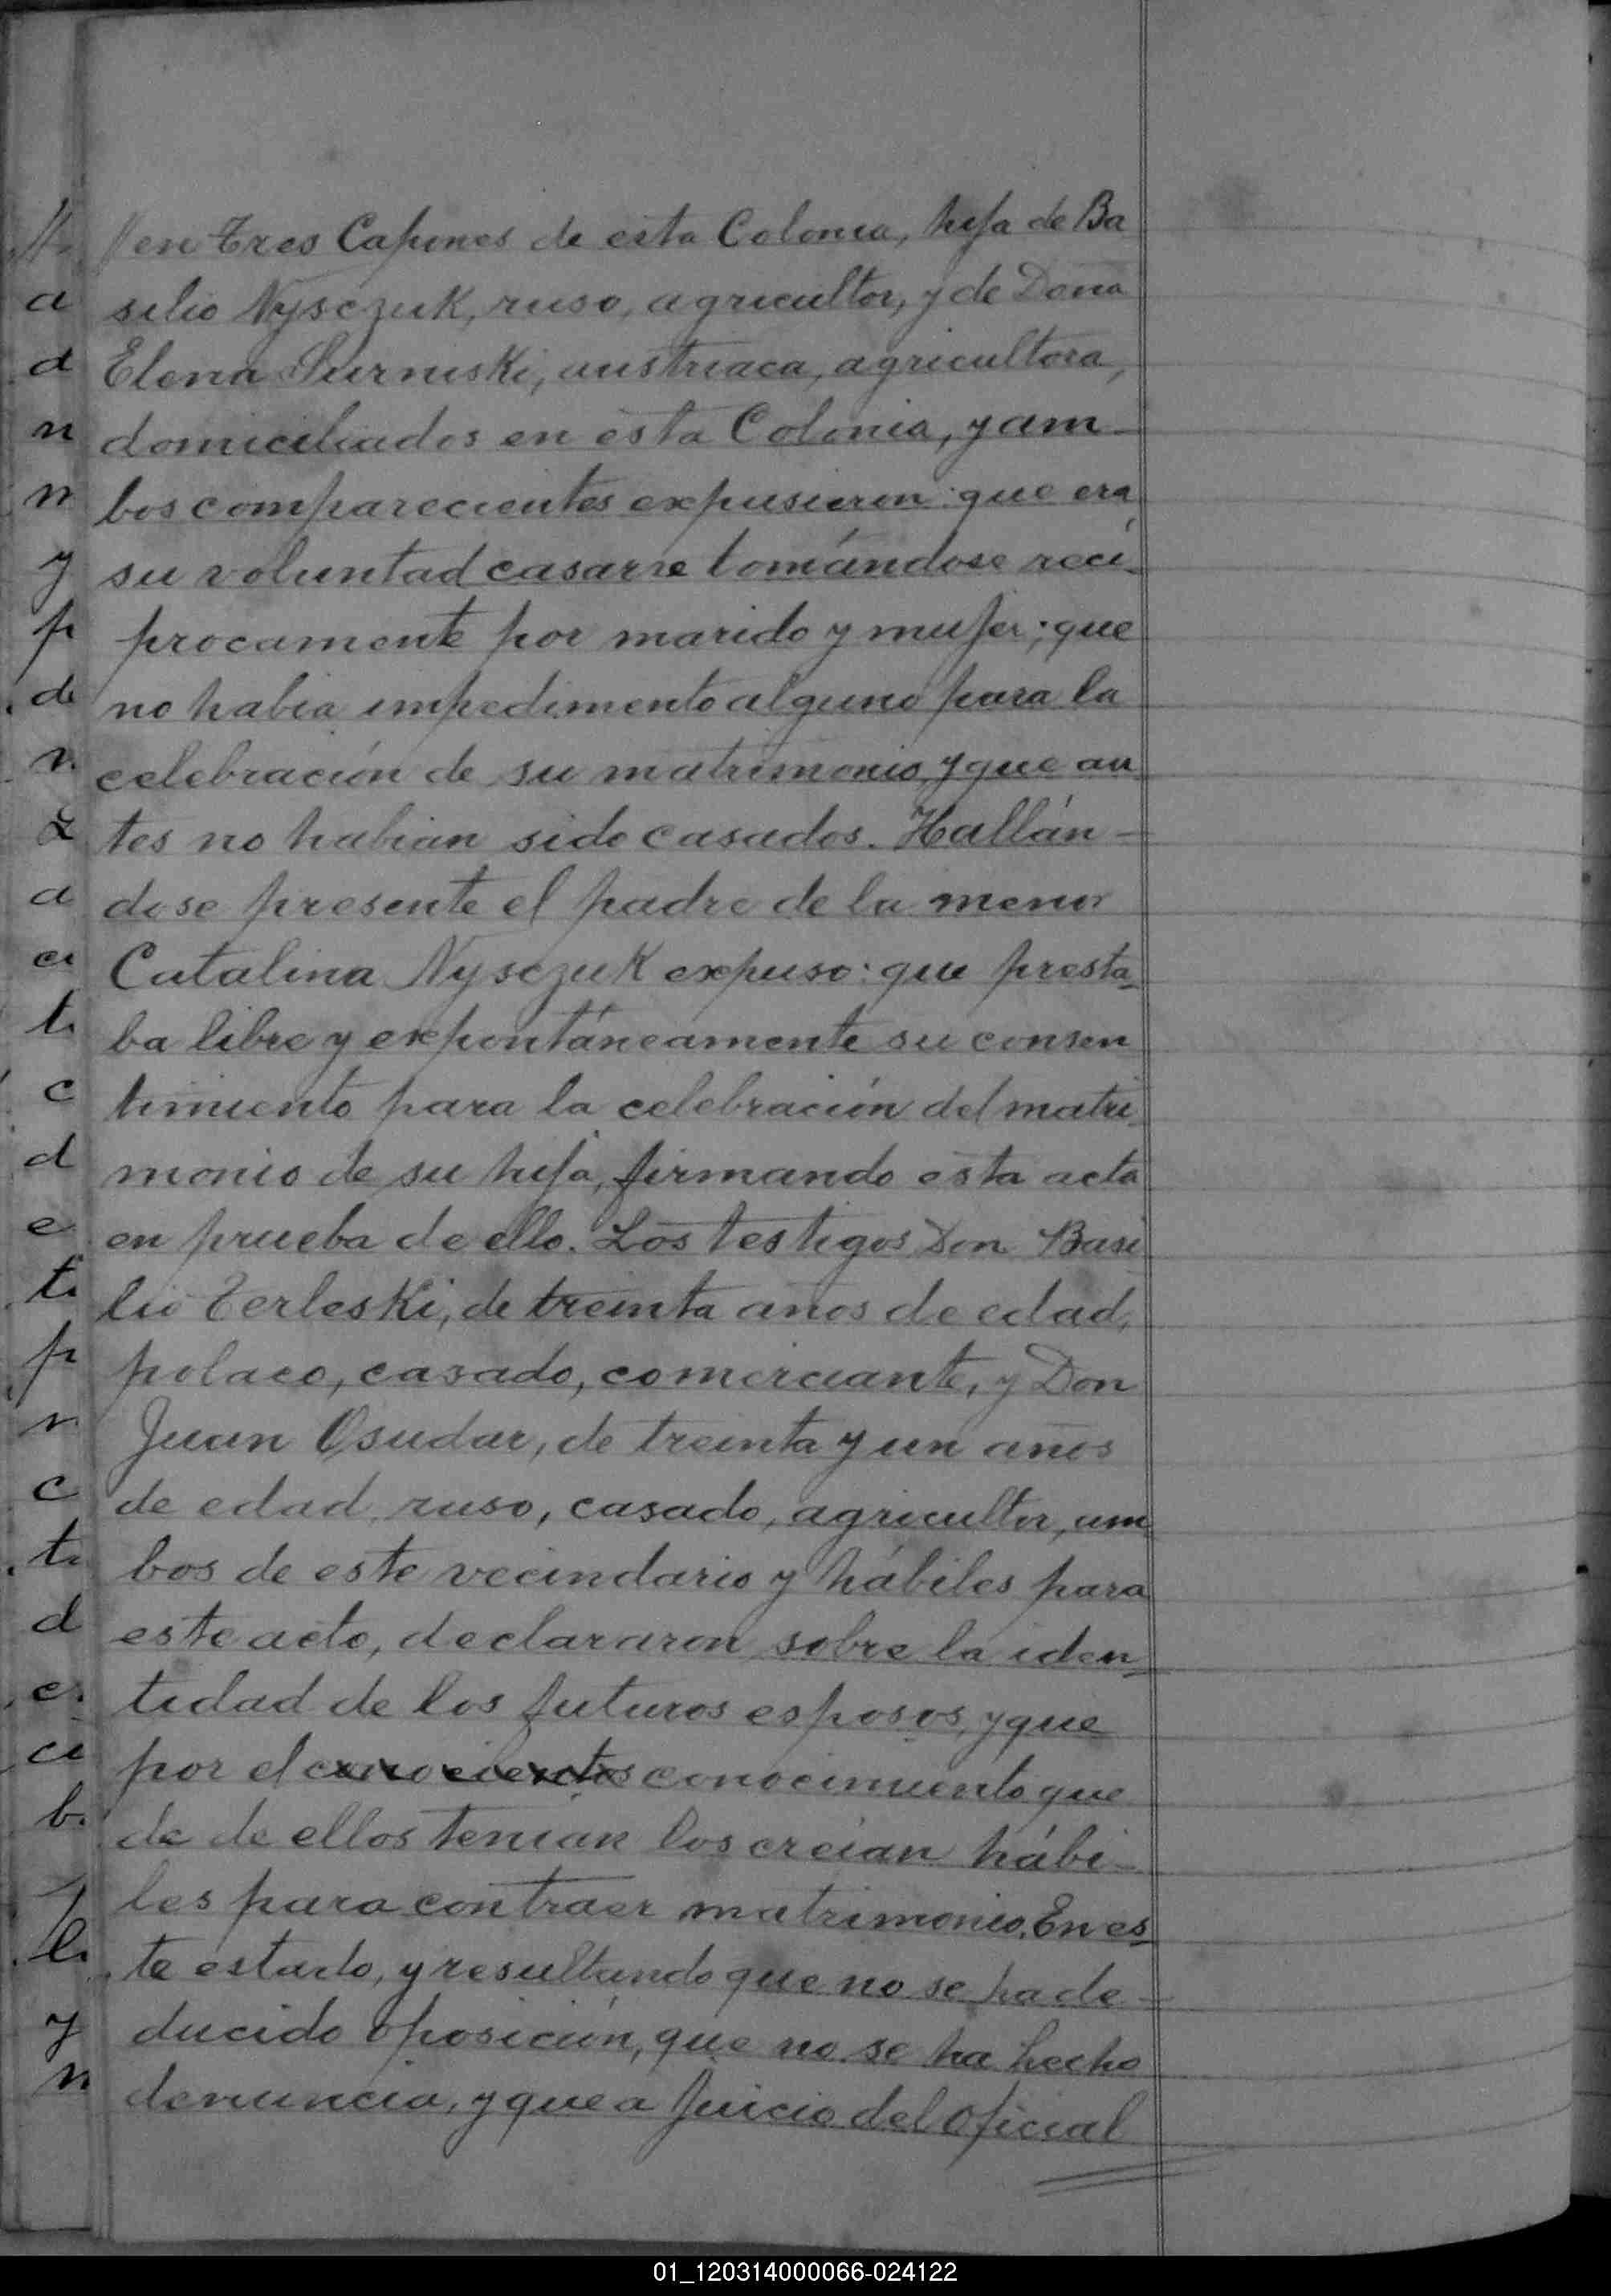 en Tres Capones de esta Colonia, hija de Ba
silio Nysczuk, ruso, agricultor, y de Dona
Elena Surniski, austriaca, agricultora,
domiciliados en esta Colonia, y am-
bos comparecientes expusieron: que era
su voluntad casarse tomándose recí-
procamente por marido y mujer; que
no habia impedimento alguno para la
celebración de su matrimonio, y que an
tes no habian sido casados. Hallán-
dose presente el padre de la menor
Catalina Nysczuk expuso: que presta-
ba libre y expontáneamente su consen
timiento para la celebración del matri-
monio de su hija, firmando esta acta
en prueba de ello. Los testigos Don Basi
lio Terleski, de treinta anos de edad,
polaco, casado, comerciante, y Don
Juan Osudar, de treinta y un anos
de edad, ruso, casado, agricultor, am
bos de este vecindario y hábiles para
este acto, declararon sobre la iden-
tidad de los futuros esposos, y que
por el conocimiento que
de de ellos tenian los creían hábi-
les para contraer matrimonio. En es-
te estado, y resultando que no se ha de-
ducido oposición, que no se ha hecho
denuncia, y que a juicio del oficial
01_120314000066-024122